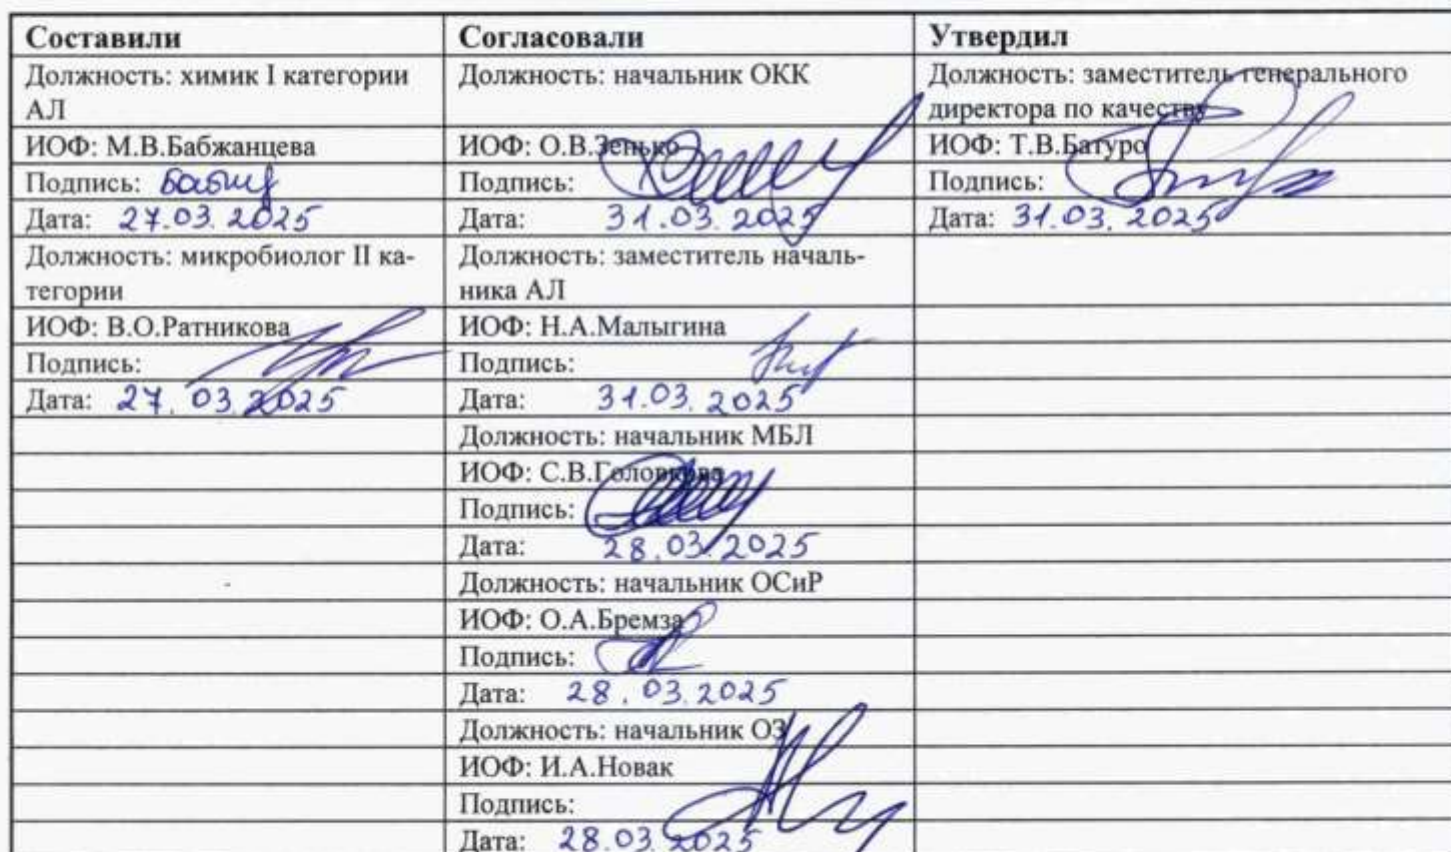 Составили
Согласовали
Утвердил
Должность: химик I категории
АЛ
Должность: начальник ОКК
Должность: заместитель генерального
директора по качеству
ИОФ: М.В.Бабжанцева
ИОФ: О.В.Зенько
ИОФ: Т.В.Батуро
Подпись:
Подпись:
Подпись:
Дата: 27.03.2025
Дата: 31.03.2025
Дата: 31.03.2025
Должность: микробиолог II ка-
тегории
Должность: заместитель началь-
ника АЛ
ИОФ: В.О.Ратникова
ИОФ: Н.А.Малыгина
Подпись:
Подпись:
Дата: 27.03.2025
Дата: 31.03.2025
Должность: начальник МБЛ
ИОФ: С.В.Головкова
Подпись:
Дата: 28.03.2025
Должность: начальник ОСиР
ИОФ: О.А.Бремза
Подпись:
Дата: 28.03.2025
Должность: начальник ОЗ
ИОФ: И.А.Новак
Подпись:
Дата: 28.03.2025